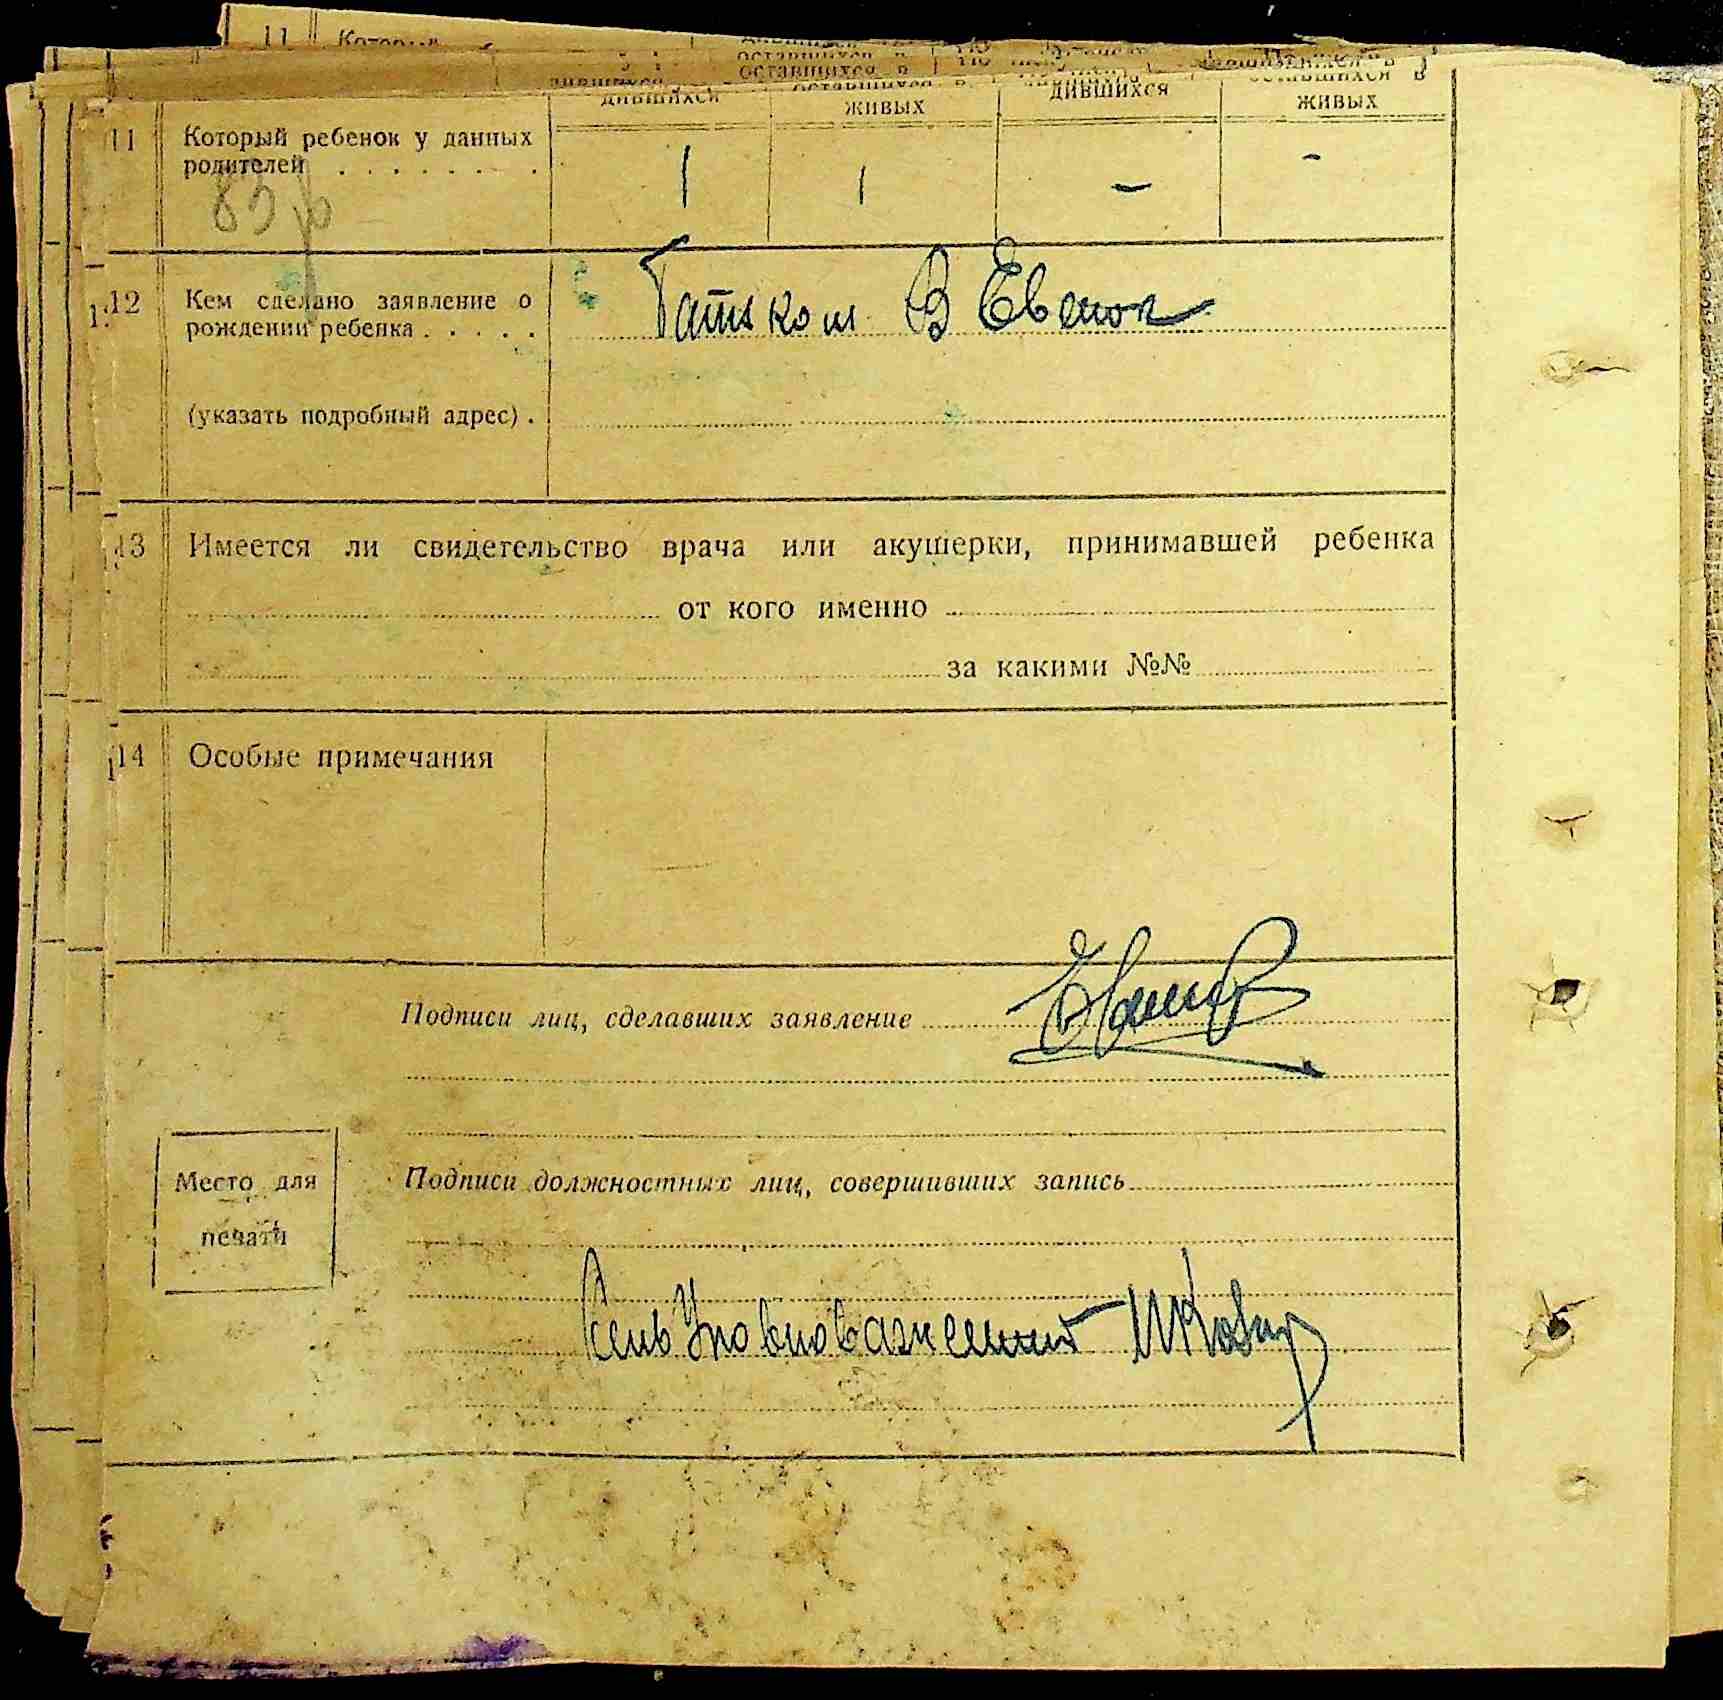 11 Которы
дившихся
живых
дившихся
живых
11 Который ребенок у данных родителей
1 1 – -
83
12 Кем сделано заявление о рождении ребенка
Батьком В
(указать подробный адрес).
13 Имеется ли свидетельство врача или акушерки, принимавшей ребенка
от кого именно
за какими №№
14 Особые примечания
Подписи лиц, сделавших заявление
Место для
печати
Подписи должностных лиц, совершивших запись
Упов­новажений